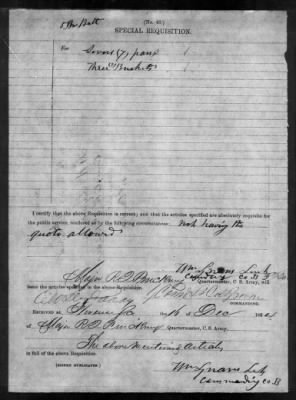 5 Bn Batt
(No. 40.)
SPECIAL REQUISITION.
For Seven (7) pans
Three (3) Buckets
I certify that the above Requisition is correct; and that the articles specified are absolutely requisite for
the public service, rendered so by the following circumstances: not having the
quota allowed
Wm Lynans Lieut
Commanding Co.
Major R. P. Quartermaster, C. S. Army, will
issue the articles specified in the above requisition.
COMMANDING.
RECEIVED at the 16 of Dec 1864
of Major R. P. Quartermaster, C. S. Army,
The above mentioned Articles
in full of the above Requisition.
(SIGNED DUPLICATES.)
Wm Lynans Lt
Commanding Co.